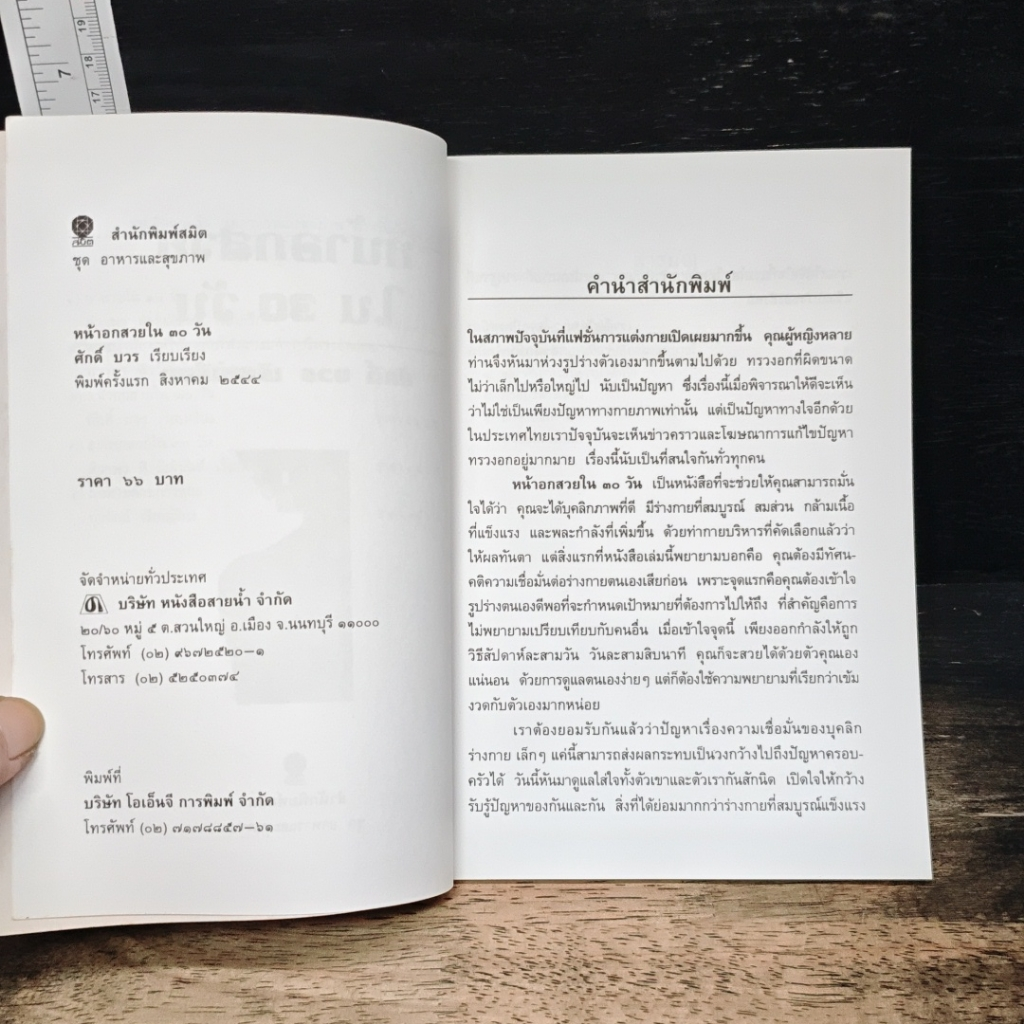 19
18
7
17
สมิต
สำนักพิมพ์สมิต
ชุด อาหารและสุขภาพ
หน้าอกสวยใน ๓๐ วัน
ศักดิ์ บวร เรียบเรียง
พิมพ์ครั้งแรก สิงหาคม ๒๕๔๔
ราคา ๖๖ บาท
จัดจำหน่ายทั่วประเทศ
บริษัท หนังสือสายน้ำ จำกัด
๒๐/๖๐ หมู่ ๕ ต.สวนใหญ่ อ.เมือง จ.นนทบุรี ๑๑๐๐๐
โทรศัพท์ (๐๒) ๙๖๗๒๕๒๐-๑
โทรสาร (๐๒) ๕๒๕๐๓๗๔
พิมพ์ที่
บริษัท โอเอ็นจี การพิมพ์ จำกัด
โทรศัพท์ (๐๒) ๗๑๗๘๘๕๗-๖๑
คำนำสำนักพิมพ์
ในสภาพปัจจุบันที่แฟชั่นการแต่งกายเปิดเผยมากขึ้น คุณผู้หญิงหลาย
ท่านจึงหันมาห่วงรูปร่างตัวเองมากขึ้นตามไปด้วย ทรวงอกที่ผิดขนาด
ไม่ว่าเล็กไปหรือใหญ่ไป นับเป็นปัญหา ซึ่งเรื่องนี้เมื่อพิจารณาให้ดีจะเห็น
ว่าไม่ใช่เป็นเพียงปัญหาทางกายภาพเท่านั้น แต่เป็นปัญหาทางใจอีกด้วย
ในประเทศไทยเราปัจจุบันจะเห็นข่าวคราวและโฆษณาการแก้ไขปัญหา
ทรวงอกอยู่มากมาย เรื่องนี้นับเป็นที่สนใจกันทั่วทุกคน
หน้าอกสวยใน ๓๐ วัน เป็นหนังสือที่จะช่วยให้คุณสามารถมั่น
ใจได้ว่า คุณจะได้บุคลิกภาพที่ดี มีร่างกายที่สมบูรณ์ สมส่วน กล้ามเนื้อ
ที่แข็งแรง และพละกำลังที่เพิ่มขึ้น ด้วยท่ากายบริหารที่คัดเลือกแล้วว่า
ให้ผลทันตา แต่สิ่งแรกที่หนังสือเล่มนี้พยายามบอกคือ คุณต้องมีทัศน-
คติความเชื่อมั่นต่อร่างกายตนเองเสียก่อน เพราะจุดแรกคือคุณต้องเข้าใจ
รูปร่างตนเองดีพอที่จะกำหนดเป้าหมายที่ต้องการไปให้ถึง ที่สำคัญคือการ
ไม่พยายามเปรียบเทียบกับคนอื่น เมื่อเข้าใจจุดนี้ เพียงออกกำลังให้ถูก
วิธีสัปดาห์ละสามวัน วันละสามสิบนาที คุณก็จะสวยได้ด้วยตัวคุณเอง
แน่นอน ด้วยการดูแลตนเองง่ายๆ แต่ก็ต้องใช้ความพยายามที่เรียกว่าเข้ม
งวดกับตัวเองมากหน่อย
เราต้องยอมรับกันแล้วว่าปัญหาเรื่องความเชื่อมั่นของบุคลิก
ร่างกาย เล็กๆ แค่นี้สามารถส่งผลกระทบเป็นวงกว้างไปถึงปัญหาครอบ-
ครัวได้ วันนี้หันมาดูแลใส่ใจทั้งตัวเขาและตัวเรากันสักนิด เปิดใจให้กว้าง
รับรู้ปัญหาของกันและกัน สิ่งที่ได้ย่อมมากกว่าร่างกายที่สมบูรณ์แข็งแรง